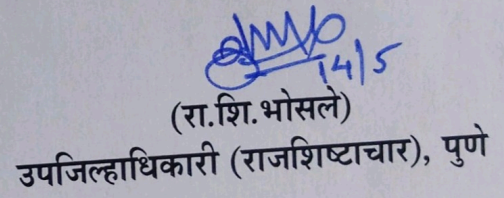 14/5
(रा.शि.भोसले)
उपजिल्हाधिकारी (राजशिष्टाचार), पुणे